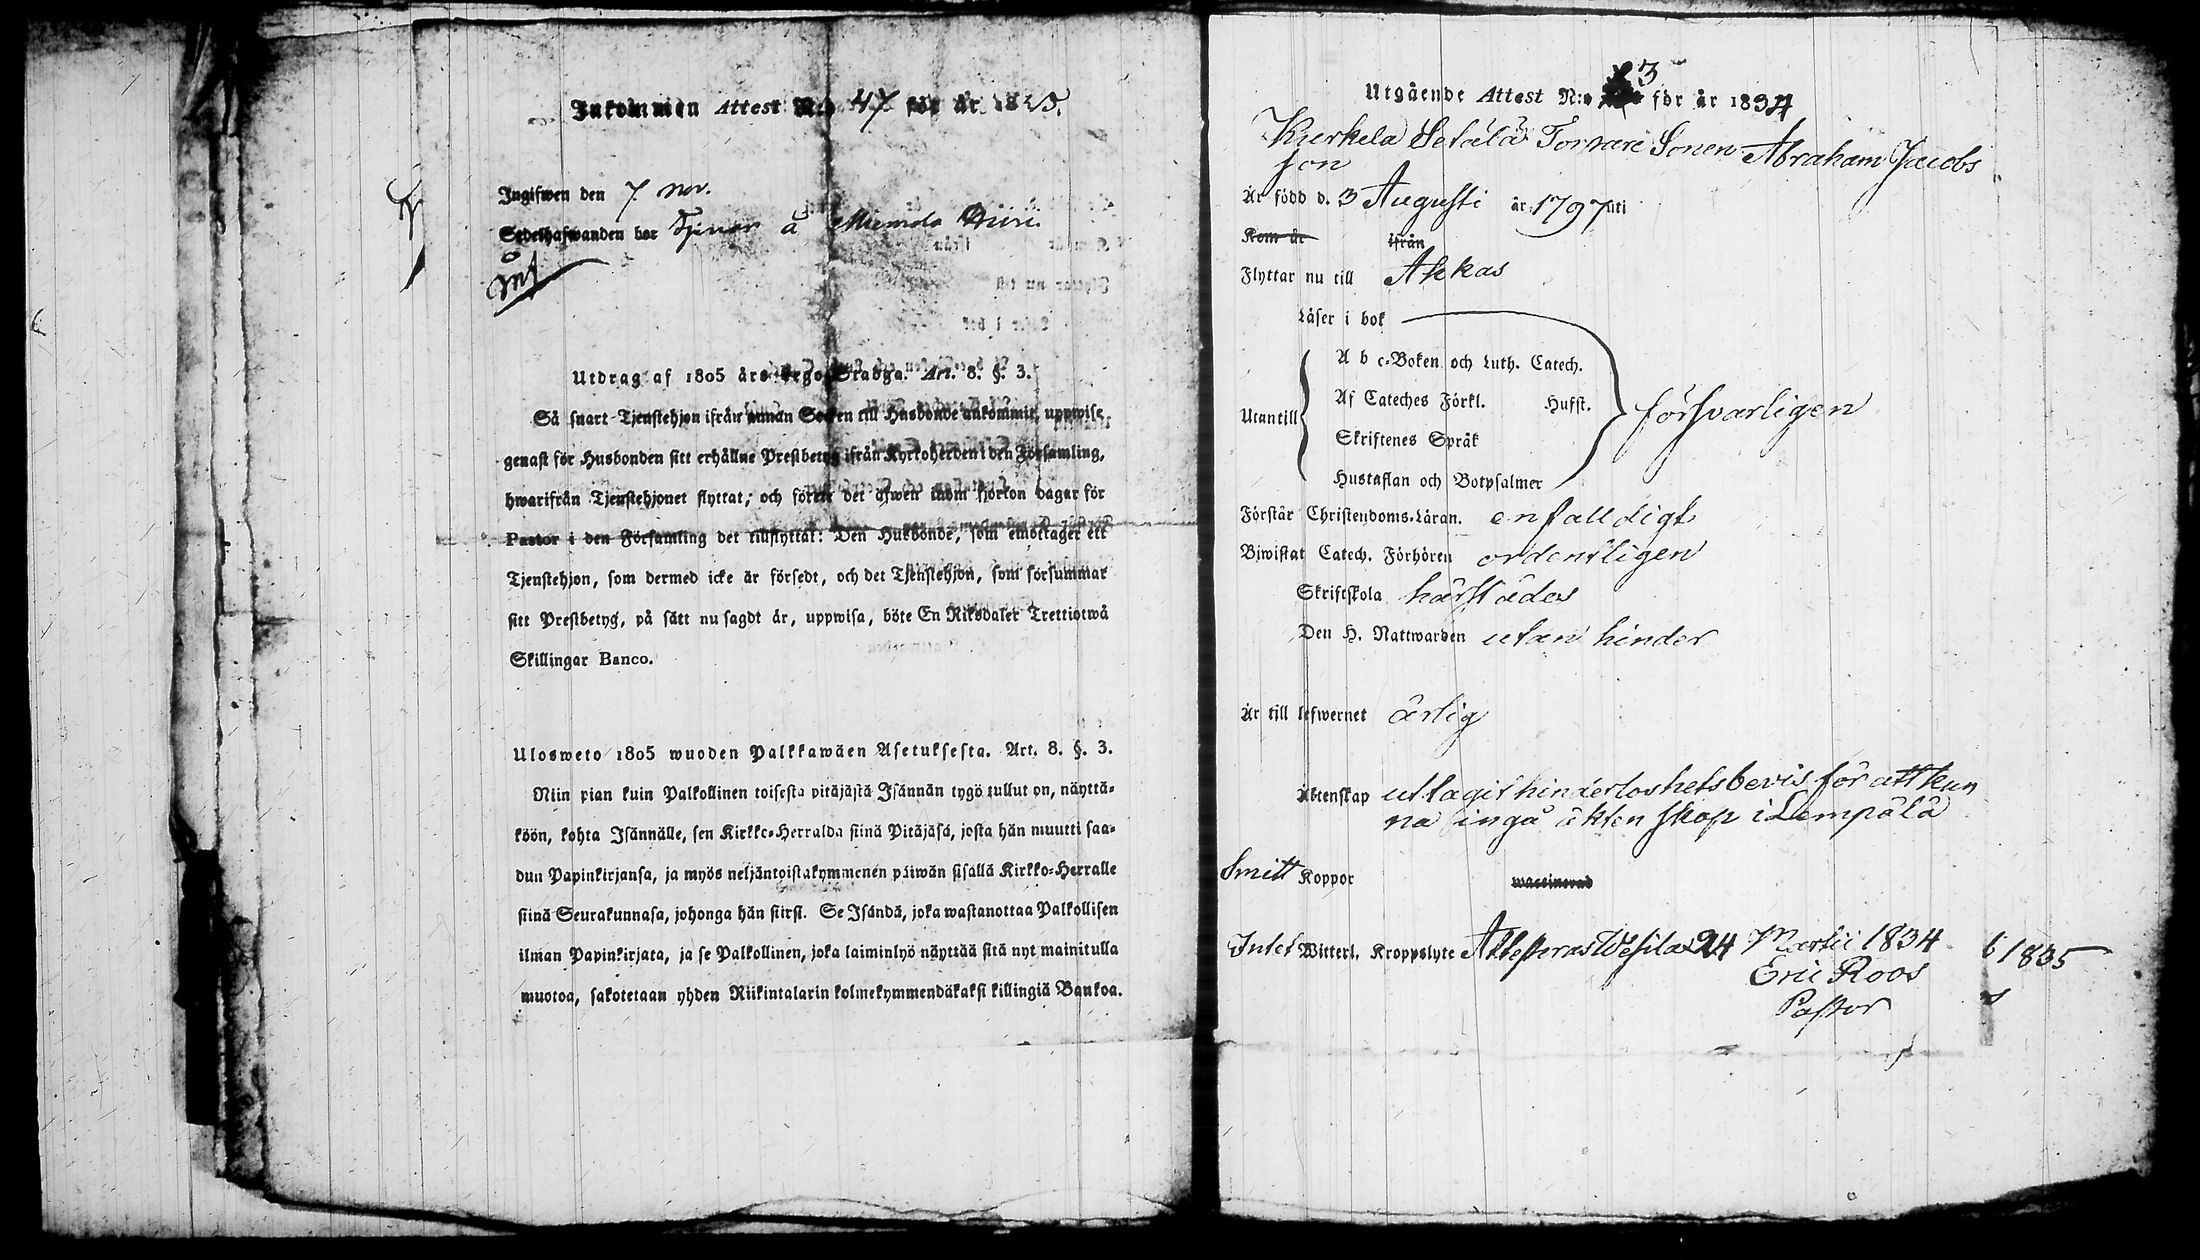 Inkommen Attest N:o 47 för år 1825.
Ingifwen den 7 Nov.
Sedelhafwanden bor Tjenar å
Utdrag af 1805 års Lego Stadga. Art. 8. §. 3.
Så snart Tjenstehjon ifrån annan Socken till Husbonde ankommit, uppwise
genast för Husbonden sitt erhållne Prestbetyg ifrån Kyrkoherden i den Församling,
hwarifrån Tjenstehjonet flyttat; och förete det äfwen inom fjorton dagar för
Pastor i den Församling det tillflyttat: Den Husbonde, som emottager ett
Tjenstehjon, som dermed icke är försedt, och det Tjenstehjon, som försummar
sitt Prestbetyg, på sätt nu sagdt är, uppwisa, böte En Riksdaler Trettiotwå
Skillingar Banco.
Ulosweto 1805 wuoden Palkkawäen Asetuksesta. Art. 8. §. 3.
Niin pian kuin Palkollinen toisesta pitäjästä Isännän tygö tullut on, näyttä-
köön, kohta Isännälle, sen Kirkko-Herralda siinä Pitäjäsä, josta hän muutti saa-
dun Papinkirjansa, ja myös neljäntoistakymmenen päiwän sisällä Kirkko-Herralle
siinä Seurakunnasa, johonga hän siirsi. Se Isändä, joka wastanottaa Palkollisen
ilman Papinkirjata, ja se Palkollinen, joka laiminlyö näyttää sitä nyt mainitulla
muotoa, sakotetaan yhden Riikintalarin kolmekymmendäkaksi killingiä Bankoa.
Utgående Attest N:o 3 för år 1834
Kurkela Setälä Torpare Sonen Abraham Jacobs
son
Är född d. 3 Augusti år 1797 uti
Kom år ifrån
Flyttar nu till Akkas
Läser i bok
A b c-Boken och Luth. Catech.
Utantill Af Cateches Förkl. Hufst. försvarligen
Skriftenes Språk
Hustaflan och Botpsalmer
Förstår Christendoms-Läran. enfalldigt
Bjwistat Catech. Förhören ordentligen
Skriftskola härstädes
Den H. Nattwarden utan hinder
Är till lefwernet ärlig
Äktenskap uttagit hinderloshetsbevis för att kun
na ingå äktenskap i Lempälä
Smitt Koppor waccinerad
Intet Witterl. Kroppslyte Attesteras Wesilax 24 Martii 1834
Eric Roos
Pastor
t 1835